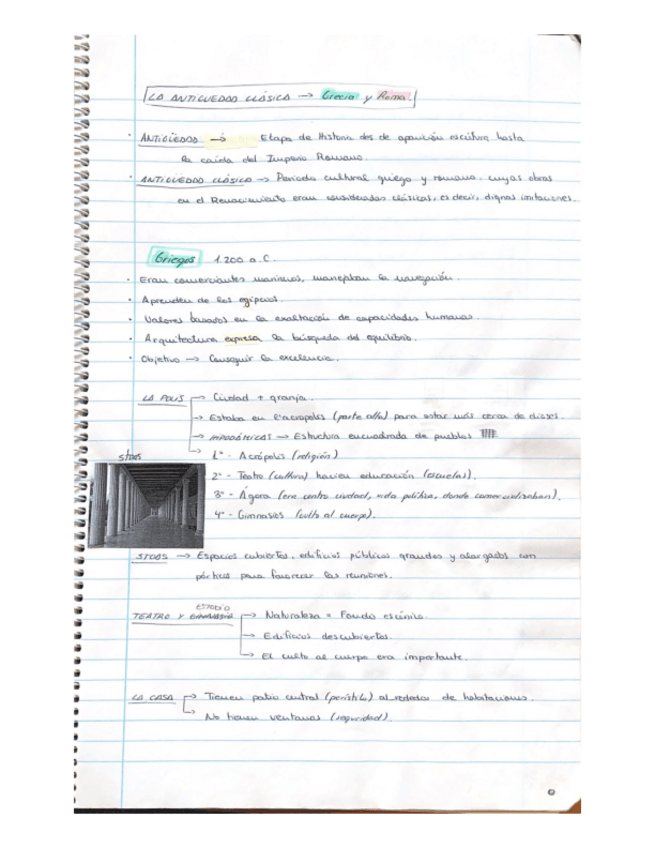 LA ANTIGÜEDAD CLÁSICA → Grecia y Roma.
· ANTIGÜEDAD → Etapa de Historia des de aparición escritura hasta
la caída del Imperio Romano.
· ANTIGÜEDAD CLÁSICA → Período cultural griego y romano. cuyas obras
en el Renacimiento eran consideradas clásicas, es decir, dignas imitaciones.
Griegos 1200 a.C.
· Eran comerciantes marineros, manejaban la navegación.
· Aprenden de los egipcios.
· Valores basados en la exaltación de capacidades humanas.
· Arquitectura expresa la búsqueda del equilibrio.
· Objetivo → Conseguir la excelencia.
LA POLIS → Ciudad + granja.
→ Estaba en l'acropolis (parte alta) para estar más cerca de dioses.
→ HIPODÁMICAS → Estructura encuadrada de pueblos
→ 1º - Acrópolis (religión)
stoas
2º - Teatro (cultura) hacían educación (escuelas).
3º - Ágora (ere centro ciudad, vida política, donde comercializaban).
4º - Gimnasios (culto al cuerpo).
STOAS → Espacios cubiertos, edificios públicos grandes y alargados con
pórticos para favorecer las reuniones.
ESTADIO
TEATRO y → Naturaleza = Fondo escénico.
→ Edificios descubiertos.
→ El culto al cuerpo era importante.
LA CASA → Tienen patio central (peristilo) alrededor de habitaciones.
→ No tienen ventanas (seguridad).